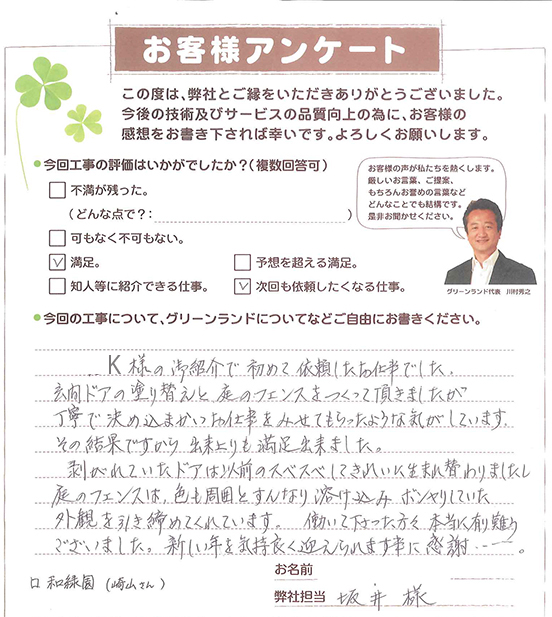 お客様アンケート
この度は、弊社とご縁をいただきありがとうございました。
今後の技術及びサービスの品質向上の為に、お客様の
感想をお書き下されば幸いです。よろしくお願いします。
●今回工事の評価はいかがでしたか?(複数回答可)
不満が残った。
(どんな点で?: )
可もなく不可もない。
満足。
予想を超える満足。
知人等に紹介できる仕事。
次回も依頼したくなる仕事。
お客様の声が私たちを熱くします。
厳しいお言葉、ご提案、
もちろんお誉めの言葉など
どんなことでも結構です。
是非お聞かせください。
グリーンランド代表 川村秀之
●今回の工事について、グリーンランドについてなどご自由にお書きください。
K様の御紹介で初めて依頼したお仕事でした。
玄関ドアの塗り替えと庭のフェンスをつくって頂きましたが
丁寧で決め込まかいお仕事をみせてもらったような気がしています。
その結果ですから出来上りも満足出来ました。
剥がれていたドアは以前のスベスベしてきれいに生まれ替わりましたし
庭のフェンスは、色も周囲とすんなり溶け込みボンヤリしていた
外観を引き締めてくれています。 働いて下さった方々本当に有難う
ございました。新しい年を気持良く迎えられます事に感謝……。
お名前
口和緑園(崎山さん)
弊社担当 坂井様